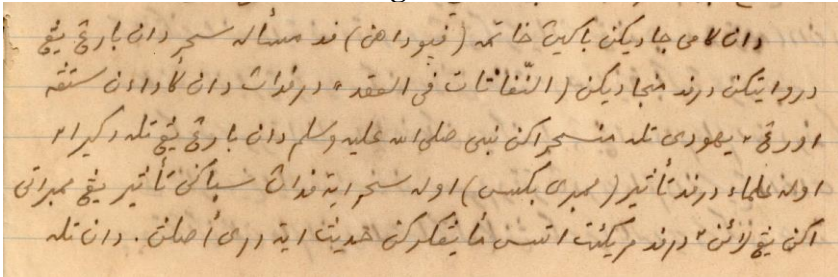 دان كامي جاديكن باكين خاتمه (ڤپوداهن) ڤد مسأله سحر دان بارڠ يڠ
دروايتكن درڤد منجاديكن (النّفاثات في العقد) درڤداڽ دان كأداءن ستڠه
اورڠ٢ يهودي تله منسحراكن نبي صلى الله عليه وسلم دان بارڠ يڠ تله دكيرا٢
اوله علماء درڤد تأثير (ممبري بكس) اوله سحر ايت ڤداڽ سباكي تأثير يڠ ممبراتي
اكن يڠ لائن٢ درڤد مريكئت اتس مڠيڠكركن حديث ايت دري أصلڽ. دان تله